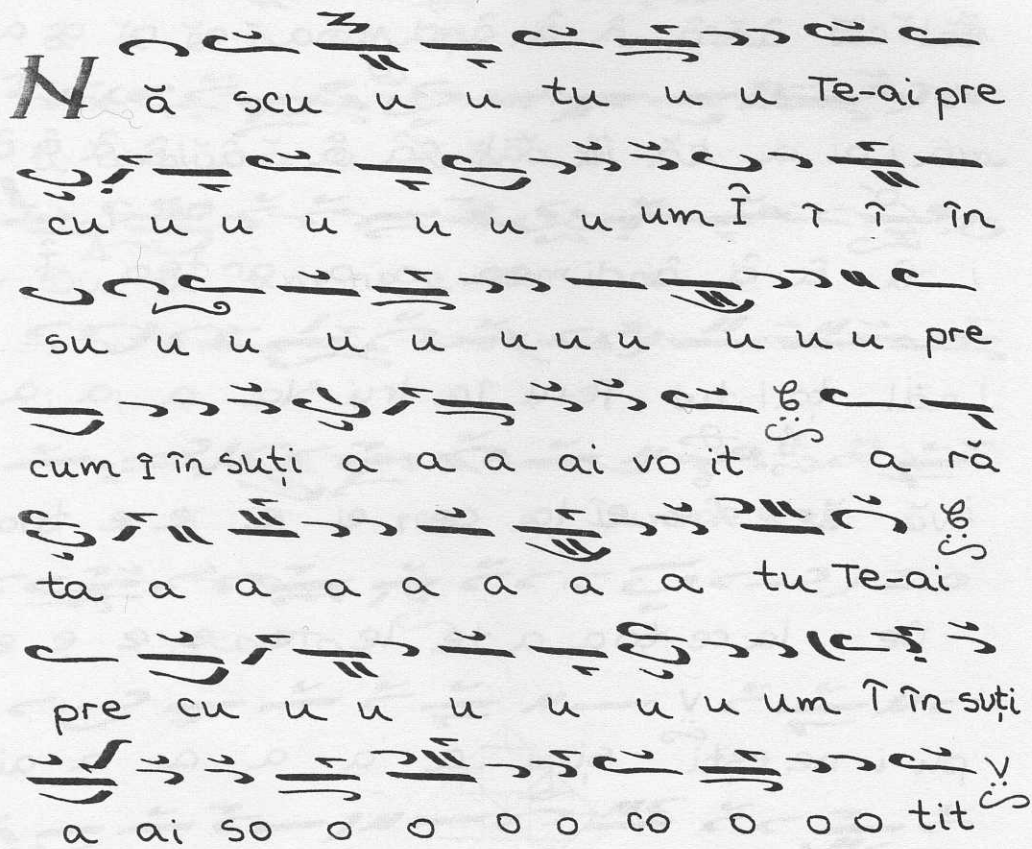 Nă scu u u tu u u Te-ai pre
cu u u u u u u um Î î î în
su u u u u u u u u u u pre
cum Î în suți a a a ai vo it a ră
ta a a a a a a a tu Te-ai
pre cu u u u u u u um Î în suți
a ai so o o o o co o o o tit